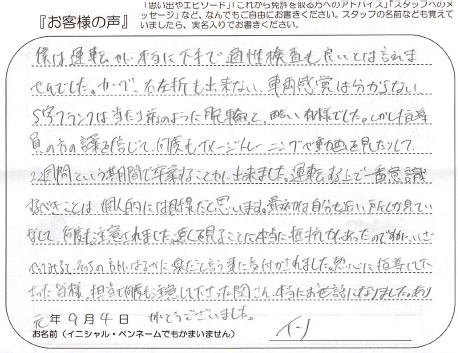 「思い出やエピソード」「これから免許を取る方へのアドバイス」「スタッフへのメ
『お客様の声』 ッセージ」など、なんでもご自由にお書きください。スタッフの名前なども覚えて
いましたら、実名入りでお書きください。
僕は運転が本当に下手で適性検査も良いとは言れま
せんでした。カーブ、右左折も出来ない、車両感覚は分からない
S字クランクは当たり前のように脱輪と、酷い有様でした。しかし指導
員の方の話を信じて、何度もイメージトレーニングや動画を見たりして
週間という期間で卒業することが出来ました。運転する上で一番意識
すべきことは、個人的には目線だと思います。自分も近い所しか見てい
なくて、何度も注意されました。遠く視ることに本当に抵抗があったので
みると、そっちの方がはるかに楽だと言う事に気付かされました。熱心に指導して下
さった皆様、担当で何度も注意して下さった関さん、本当にお世話になりました。あり
がとうございました。
元年 9月 4日
お名前（イニシャル・ペンネームでもかまいません）